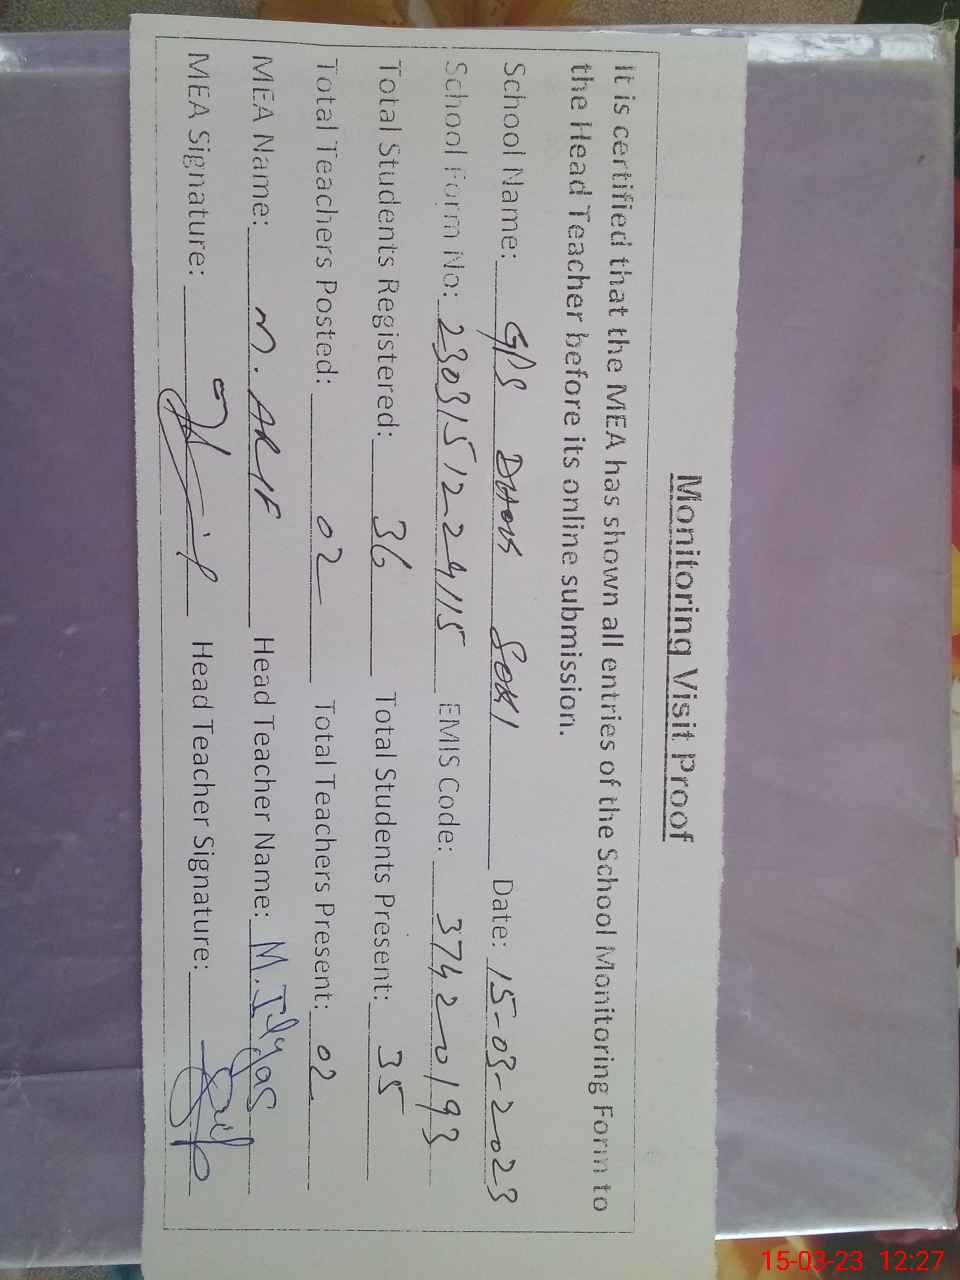 Monitoring Visit Proof
It is certified that the MEA has shown all entries of the School Monitoring Form to
the Head Teacher before its online submission.
School Name: GPS Date: 15-03-2023
School Form No: 2303151224115 EMIS Code: 37420193
Total Students Registered: 36 Total Students Present: 35
Total Teachers Posted: 02 Total Teachers Present: 02
MEA Name: M. ARIF Head Teacher Name: M. Ilyas
MEA Signature: Head Teacher Signature:
15-03-23 12:27